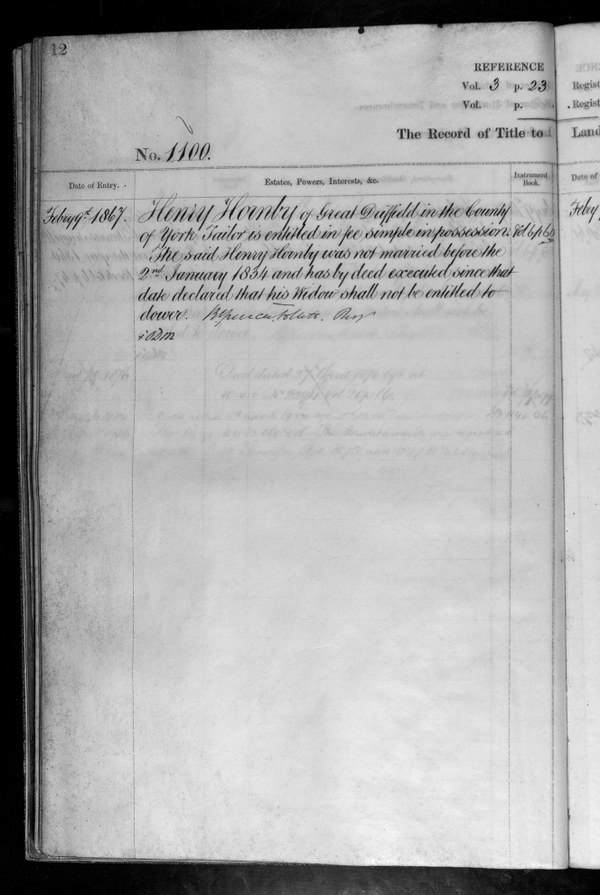 12
REFERENCE
Vol. 3 p. 23
Vol. p.
The Record of Title to
No. 1100.
Date of Entry.
Estates, Powers, Interests, &c.
Instrument Book.
Febry 9th 1867. Henry Hornby of Great Driffield in the County
of York Tailor is entitled in fee simple in possession. Vol 6 p
The said Henry Hornby was not married before the
2nd January 1834 and has by deed executed since that
date declared that his Widow shall not be entitled to
dower.
Regist
Regist
Land
Date of
Feby